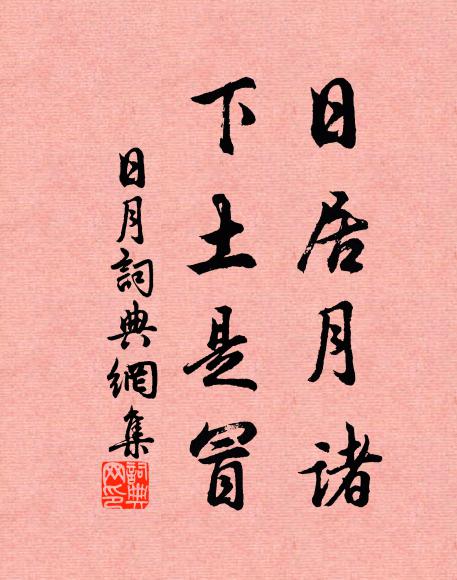 日居月諸
下土是冒
日月詞典網集
詞典網印